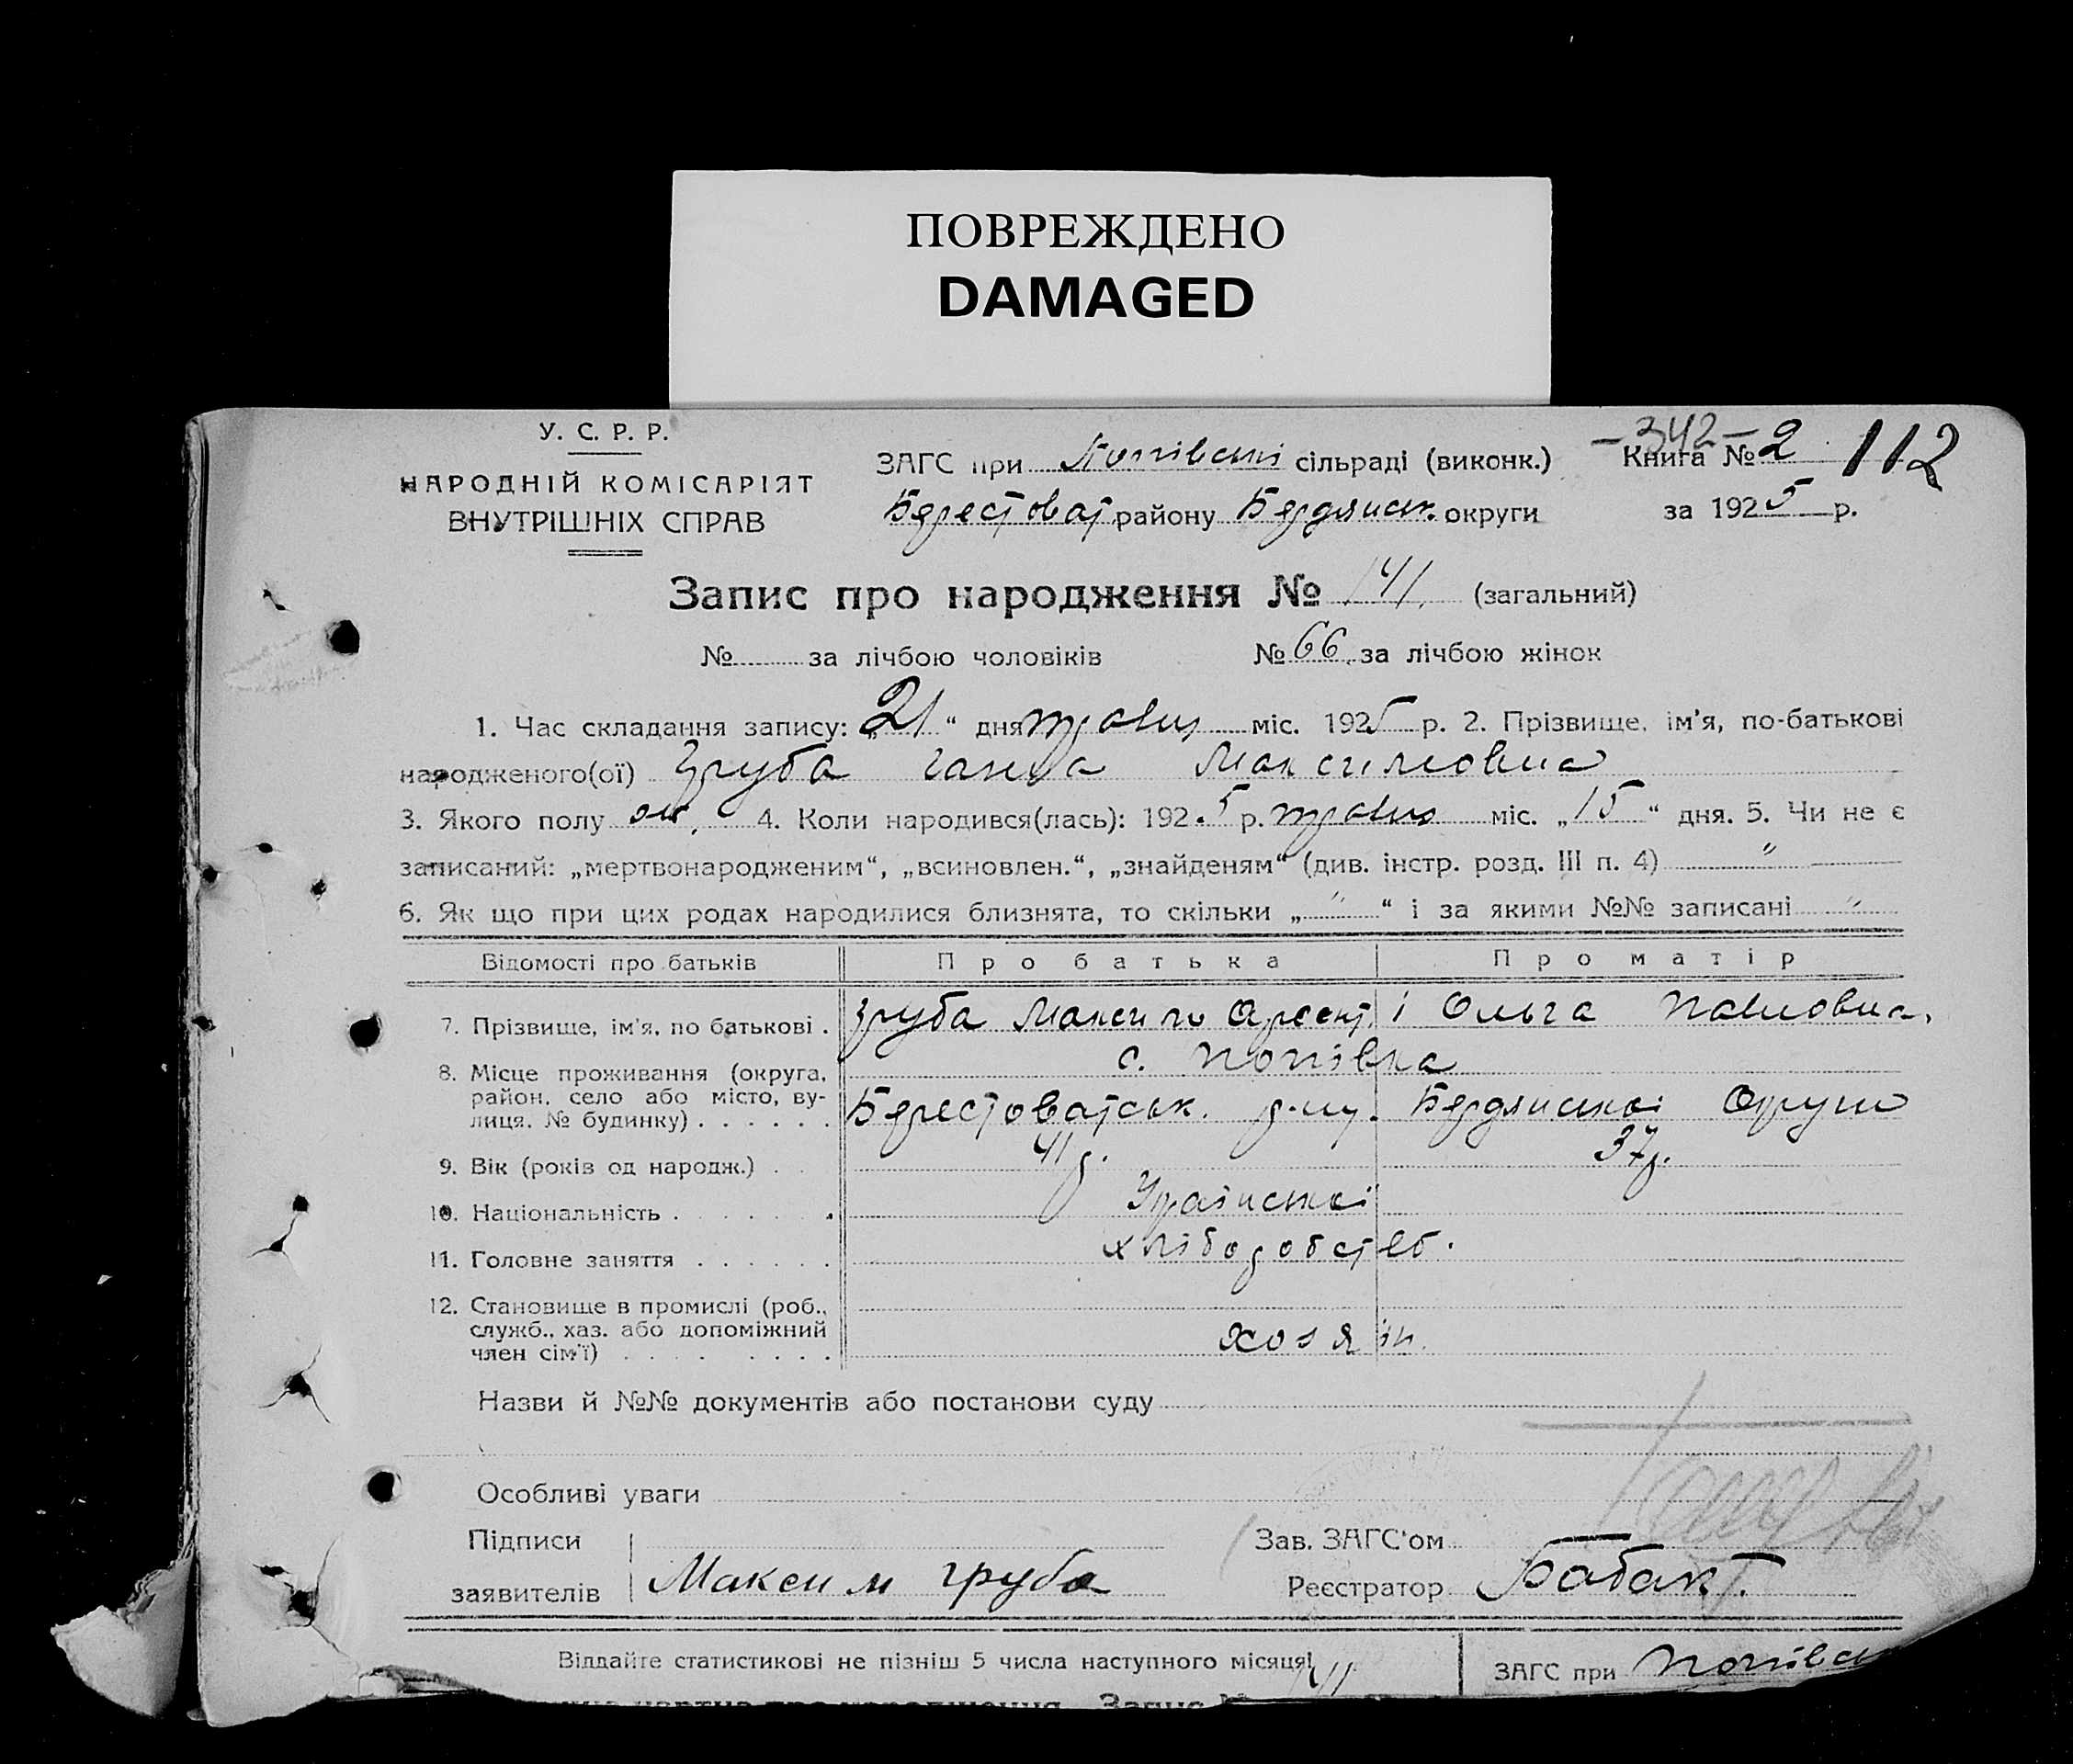 ПОВРЕЖДЕНО
DAMAGED
У. С. Р. Р.
НАРОДНІЙ КОМІСАРІЯТ
ВНУТРІШНІХ СПРАВ
ЗАГС при Попівські сільраді (виконк.)
Берестоват району Бердянськ. округи
– 342 –
Книга № 2 112
за 1925 р.
Запис про народження № 141. (загальний)
№ за лічбою чоловіків № 66. за лічбою жінок
1. Час складання запису: „21“ дня травня міс. 1925 р. 2. Прізвище, ім'я, по-батькові
народженого(ої) Груба Ганна Максимовна
3. Якого полу ж. 4. Коли народився(лась): 1925 р. травня міс. „15“ дня. 5. Чи не є
записаний: „мертвонародженим“, „всиновлен.“, „знайденям“ (див. інстр. розд. III п. 4) "
6. Як що при цих родах народилися близнята, то скільки „ " “ і за якими №№ записані "
Відомості про батьків Про батька Про матір
7. Прізвище, ім'я, по батькові . Груба Максим і Ольга Павловна.
8. Місце проживання (округа, с. Попівка
район, село або місто, ву-
лиця, № будинку) . . . . . . Берестоватськ. р-ну. Бердянської Округи
9. Вік (років од народж.) . . 41 р. 37 р.
10. Національність . . . . . . . Українські
11. Головне заняття . . . . . . хліборобств.
12. Становище в промислі (роб.,
служб., хаз. або допоміжний
член сім'ї) . . . . . . . . хозяїн.
Назви й №№ документів або постанови суду
Особливі уваги
Підписи
заявителів Максим Груба
Зав. ЗАГС'ом
Реєстратор Бабак
Віддайте статистикові не пізніш 5 числа наступного місяця!
141
ЗАГС при Попівськ